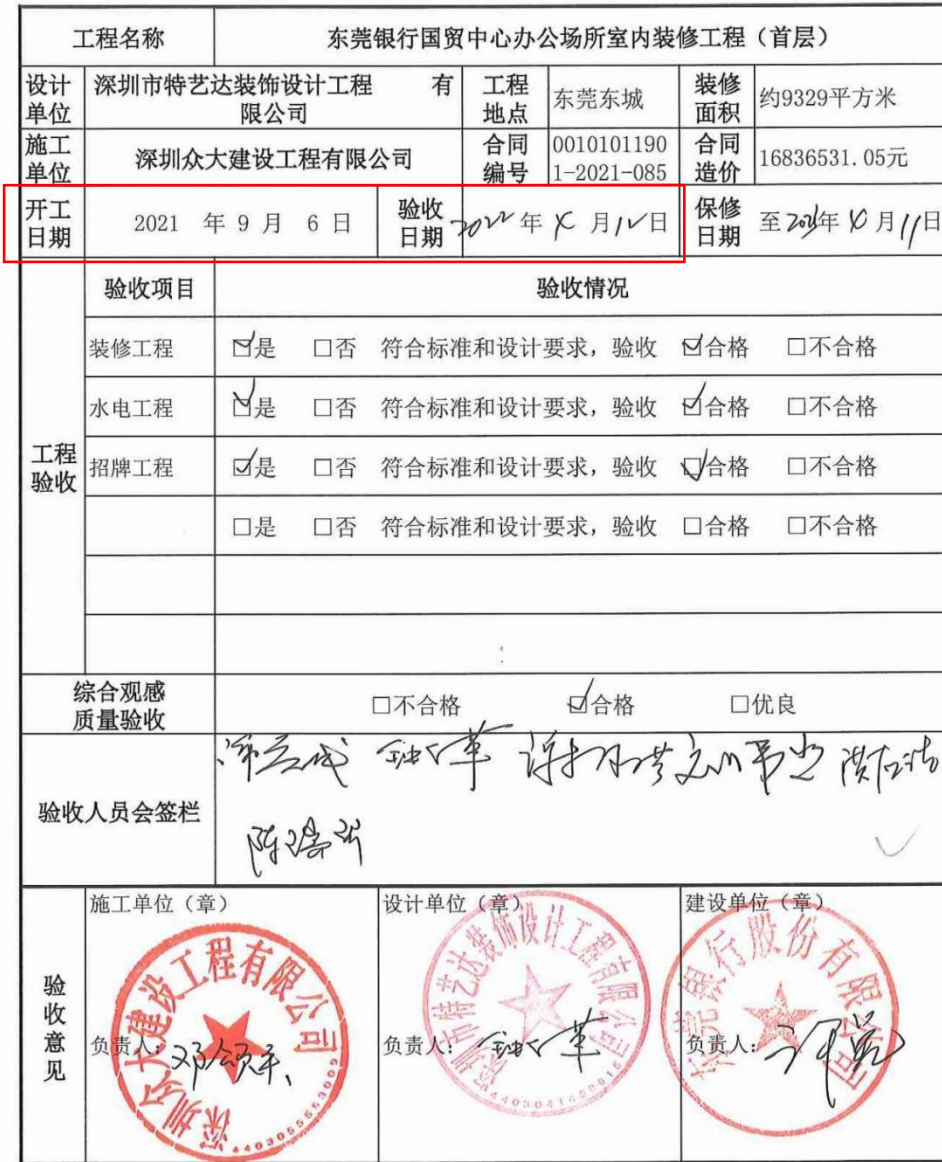 工程名称 东莞银行国贸中心办公场所室内装修工程（首层）
设计单位 深圳市特艺达装饰设计工程 有限公司 工程地点 东莞东城 装修面积 约9329平方米
施工单位 深圳众大建设工程有限公司 合同编号 00101011901-2021-085 合同造价 16836531.05元
开工日期 2021 年 9 月 6 日 验收日期 2022 年 月 12 日 保修日期 至 年 月 11 日
验收项目 验收情况
工程验收
装修工程 ☑是 □否 符合标准和设计要求，验收 ☑合格 □不合格
水电工程 ☑是 □否 符合标准和设计要求，验收 ☑合格 □不合格
招牌工程 ☑是 □否 符合标准和设计要求，验收 ☑合格 □不合格
□是 □否 符合标准和设计要求，验收 □合格 □不合格
综合观感质量验收 □不合格 ☑合格 □优良
验收人员会签栏
验收意见
施工单位（章） 设计单位（章） 建设单位（章）
负责人： 负责人： 负责人：
深圳众大建设工程有限公司
深圳市特艺达装饰设计工程有限公司
东莞银行股份有限公司